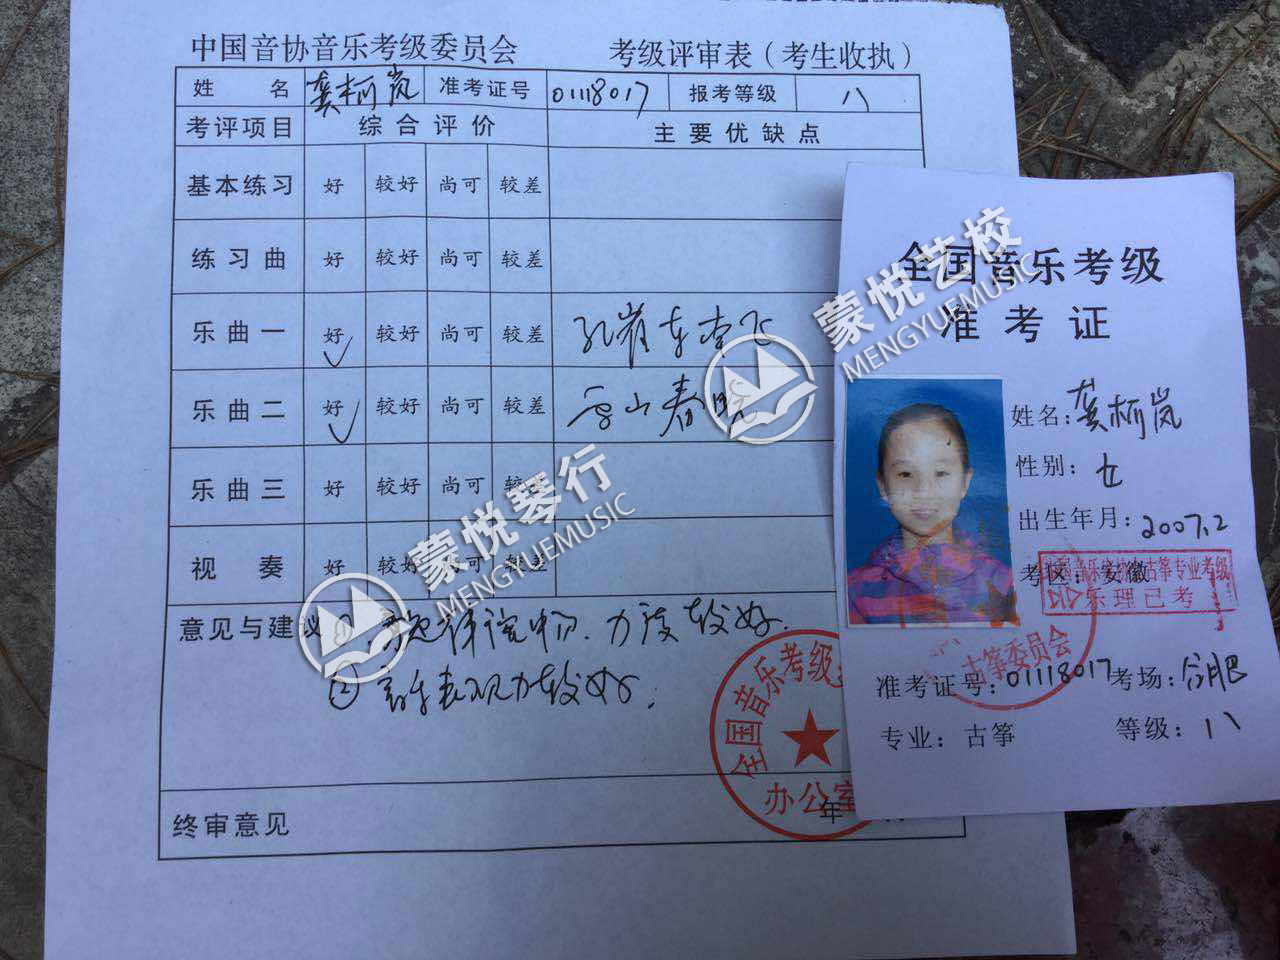 中国音协音乐考级委员会 考级评审表（考生收执）
姓 名 龚柯岚 准考证号 01118017 报考等级 八
考评项目 综合评价 主要优缺点
基本练习 好 较好 尚可 较差
练习曲 好 较好 尚可 较差
乐曲一 好 较好 尚可 较差 孔雀东南飞
乐曲二 好 较好 尚可 较差 香山春晓
乐曲三 好 较好 尚可 较差
视 奏 好 较好 尚可 较差
意见与建议 ① 力度较好.
② 音乐表现力较好.
终审意见
年
全国音乐考级
办公室
全国音乐考级
准考证
姓名：龚柯岚
性别：女
出生年月：2007.2
考区：安徽
古筝专业考级
乐理已考
古筝委员会
准考证号：01118017 考场：合肥
专业：古筝 等级：八
蒙悦艺校
MENGYUEMUSIC
蒙悦琴行
MENGYUEMUSIC